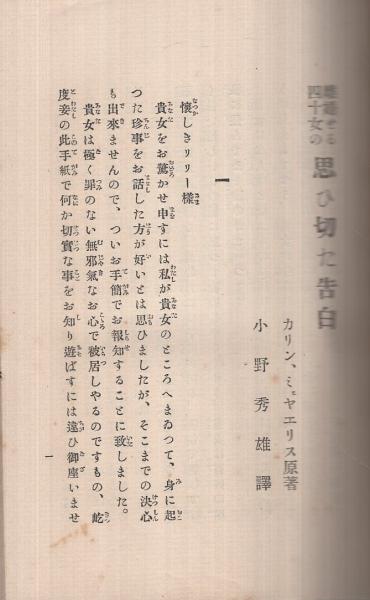 離婚せる
四十女の
思ひ切た告白
カリン、ミヤエリス原著
小野秀雄譯
一
懷しきリリー樣
貴女をお驚かせ申すには私が貴女のところへまゐつて、身に起
つた珍事をお話した方が好いとは思ひましたが、そこまでの決心
も出來ませんので、ついお手簡でお報知することに致しました。
貴女は極く罪のない無邪氣なお心で被居しやるのですもの、屹
度妾の此手紙で何か切實な事をお知り遊ばすには違ひ御座いませ
一